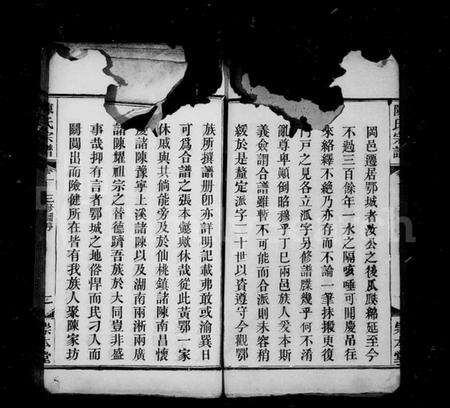 陳氏宗譜
岡邑遷居鄂城者汝公之後瓜瓞綿延至今
不過三百餘年一水之隔咳唾可聞慶吊往
來絡繹不絶乃亦存而不論一筆抹搬更復
門戶之見各立派字另修譜牒幾乎何不淆
亂尊卑顛倒昭穆乎丁巳兩邑族人爰本斯
義僉謂合譜雖暫不可能而合派則未容稍
緩於是釐定派字二十世以資遵守今觀鄂
崇本堂
族所撰譜冊卽亦詳明記載弗敢或渝異日
可爲合譜之張本懿歟休哉從此黃鄂一家
休戚與共倘能旁及於仙桃鎮諸陳南昌懷
慶諸陳豫寧上溪諸陳以及湖南兩淅兩廣
諸陳耀祖宗之晉德躋吾族於大同豈非盛
事哉抑有言者鄂城之地俗悍而民刁人而
闤闠出而險健所在皆有我族人聚陳家坊
陳氏宗譜
崇本堂